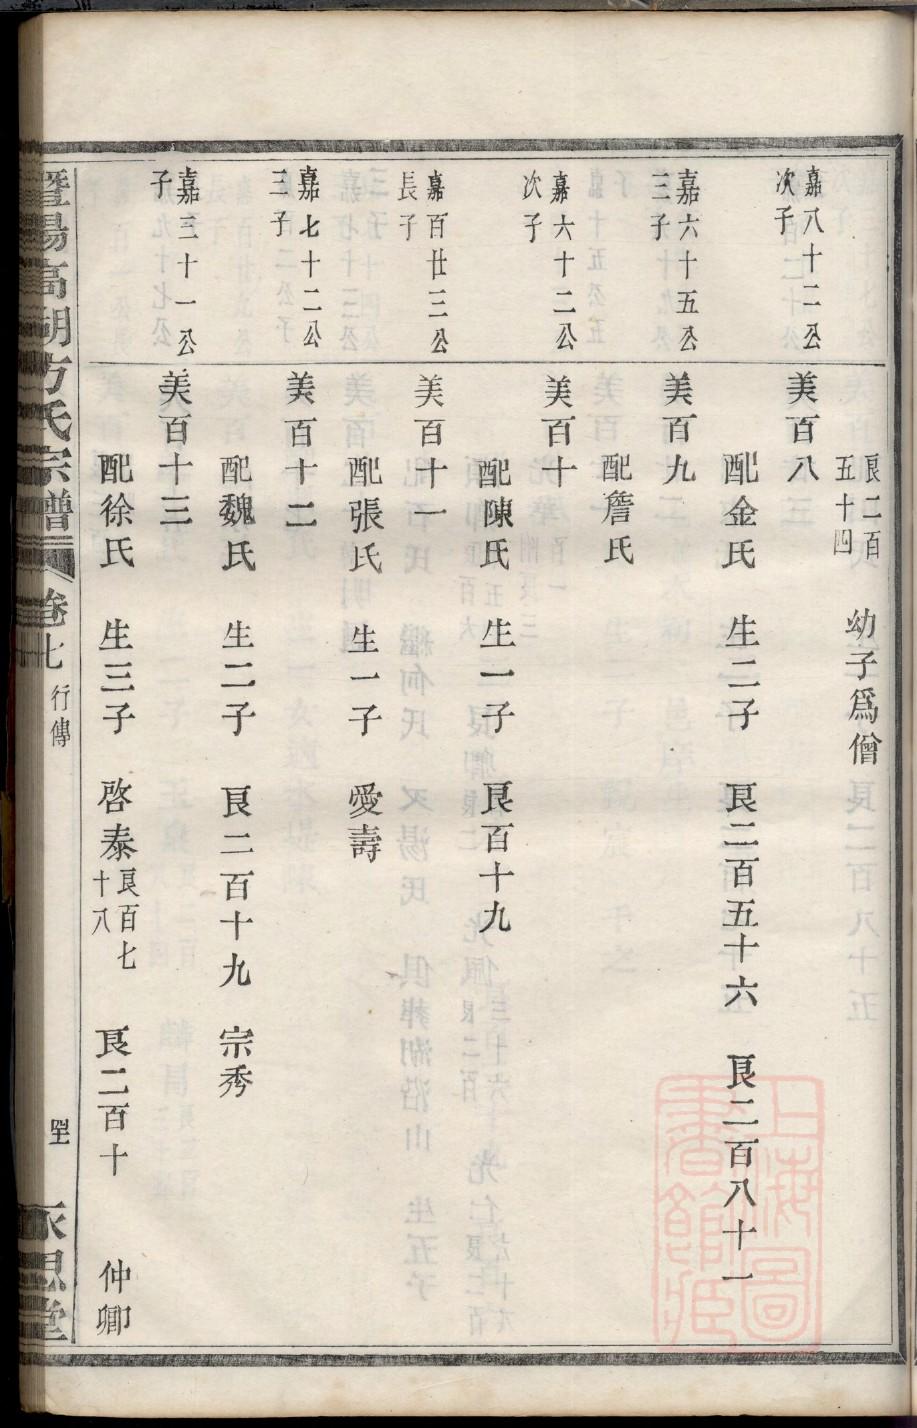 良二百五十四　幼子爲僧
嘉八十二公次子
美百八
配金氏　生二子　良二百五十六　良二百八十一
嘉六十五公三子
美百九
配詹氏
嘉六十二公次子
美百十
配陳氏　生一子　良百十九
嘉百廿三公長子
美百十一
配張氏　生一子　愛壽
嘉七十二公三子
美百十二
配魏氏　生二子　良二百十九　宗秀
嘉三十一公子
美百十三
配徐氏　生三子　啓泰良百七十八　良二百十　仲卿
暨陽高湖方氏宗譜　卷七　行傳　永思堂
上海圖書館藏